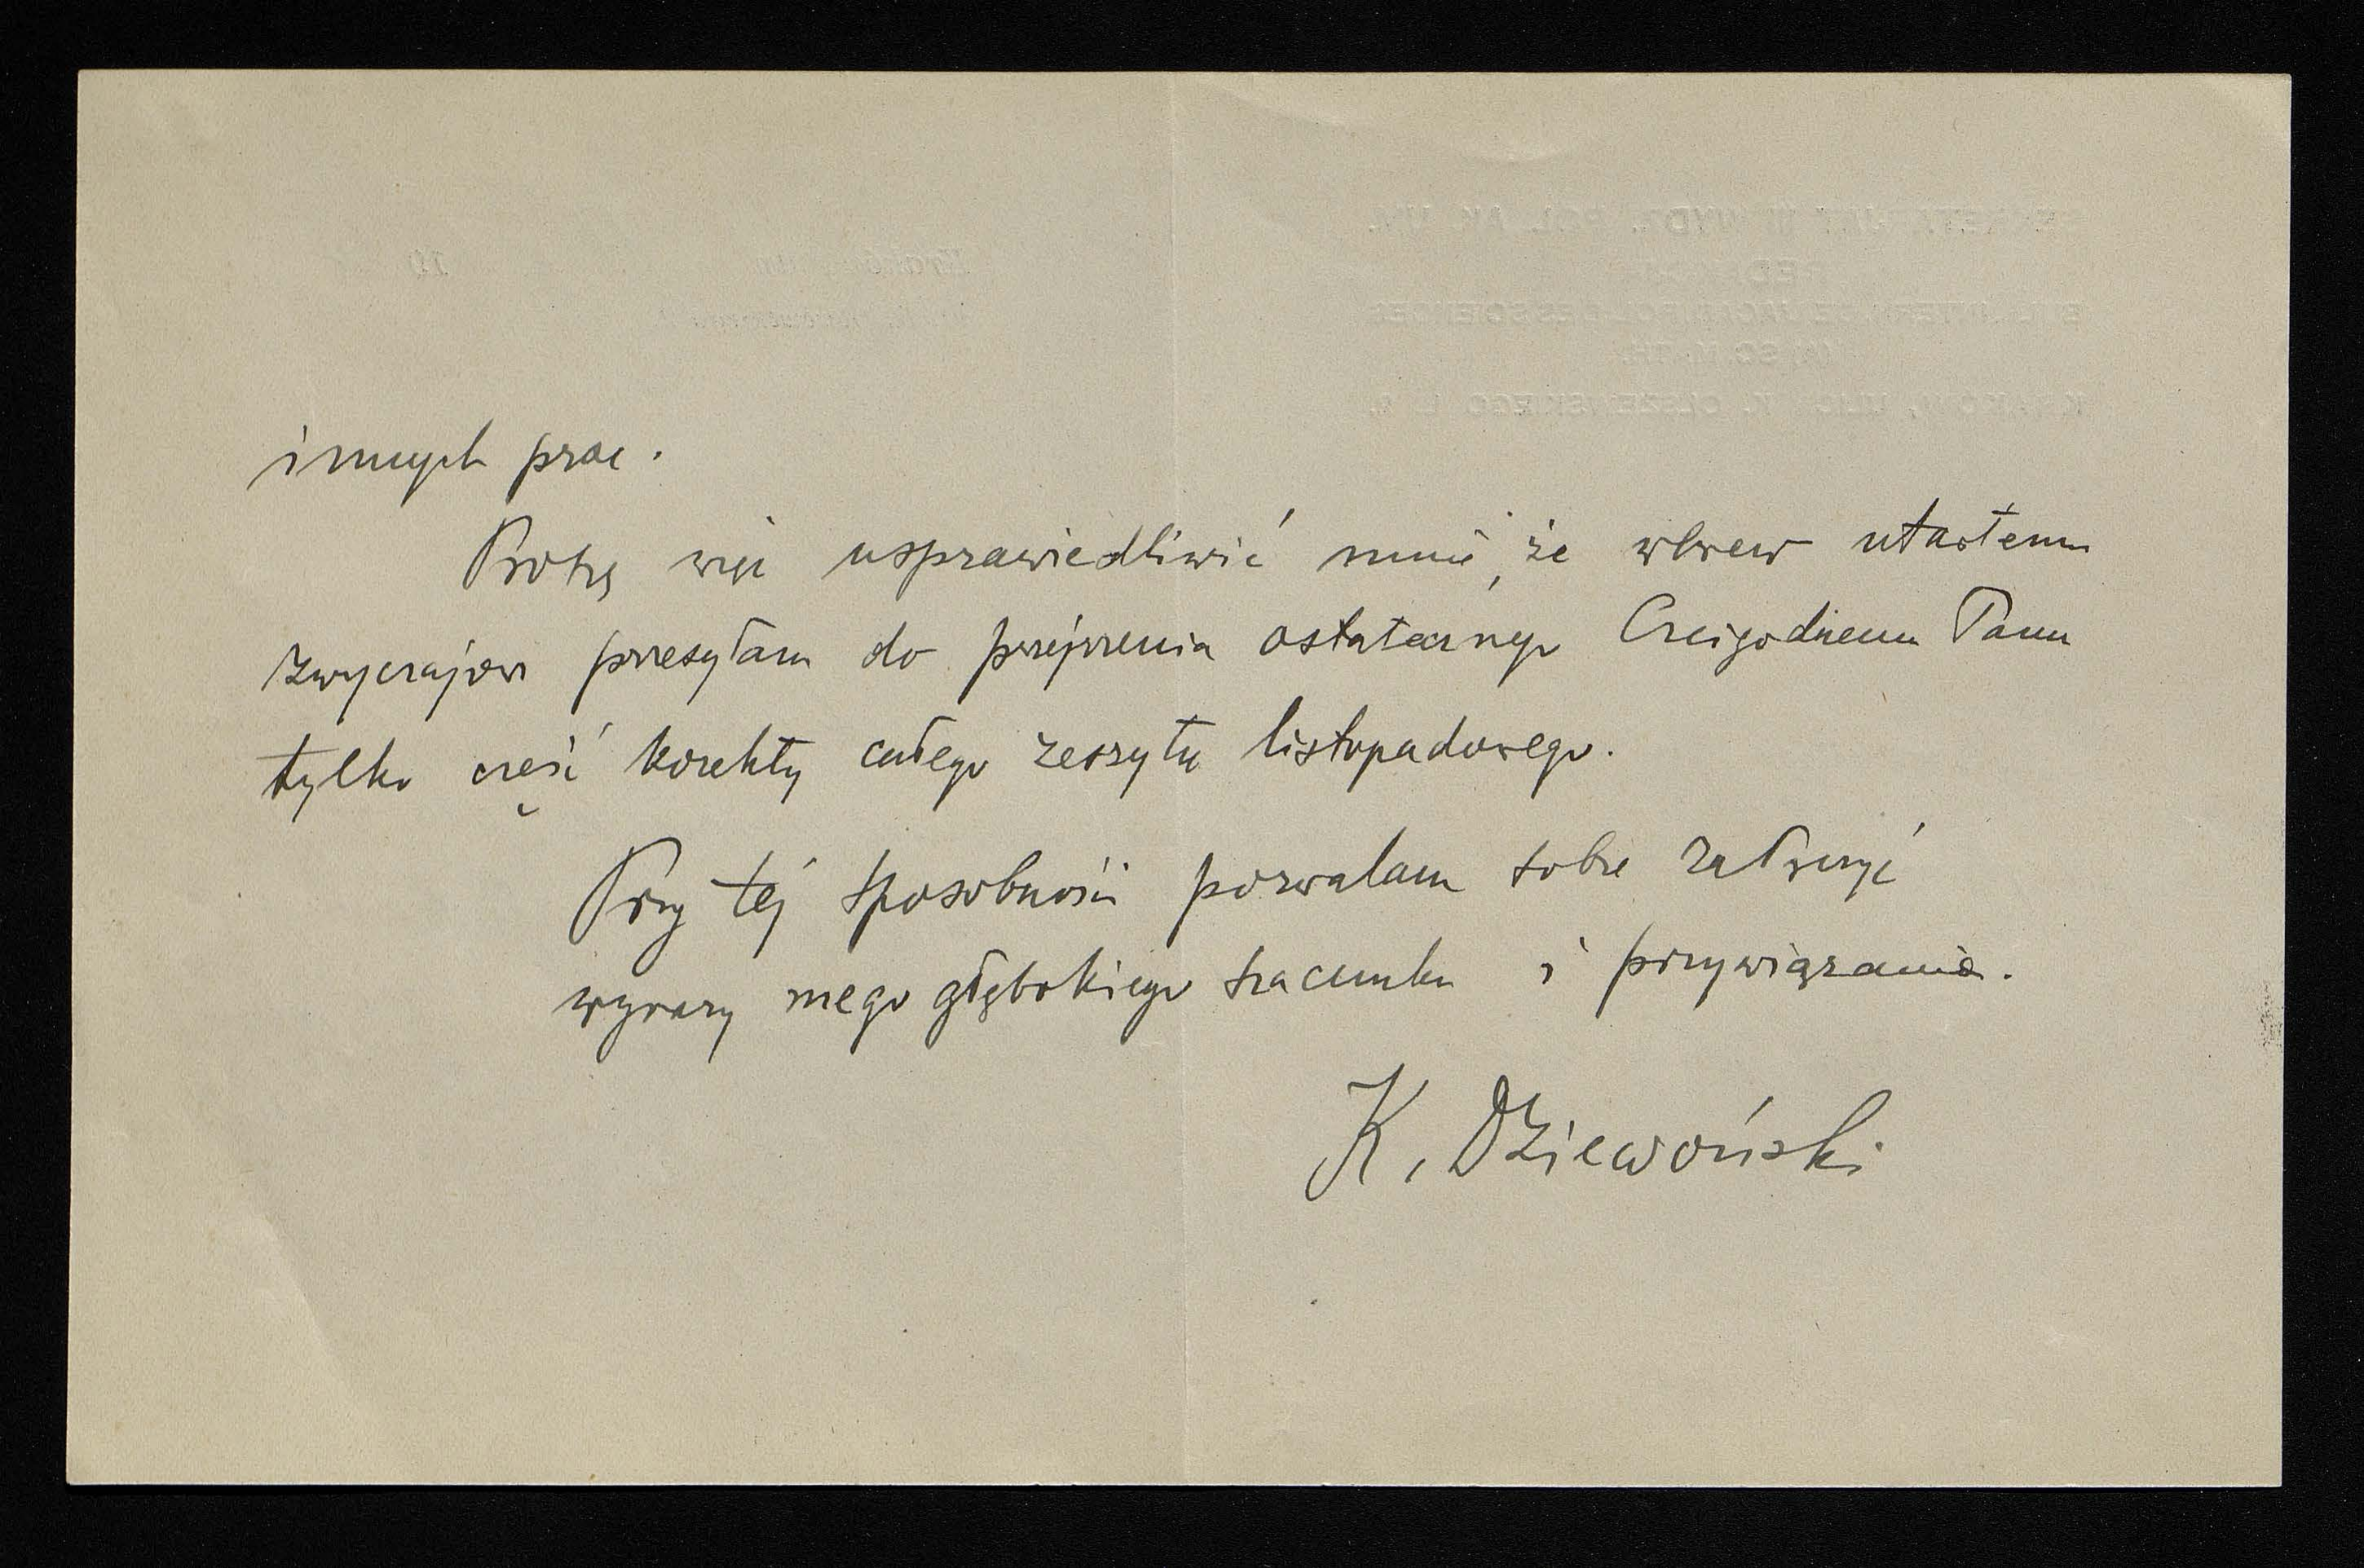 innych prac.
Proszę więc usprawiedliwić mnie, że wbrew utartemu
zwyczajowi przesyłam do przejrzenia ostatecznego Czcigodnemu Panu
tylko część korekty całego zeszytu listopadowego.
Przy tej sposobności pozwalam sobie załączyć
wyrazy mego głębokiego szacunku i przywiązania.
K. Dziewoński